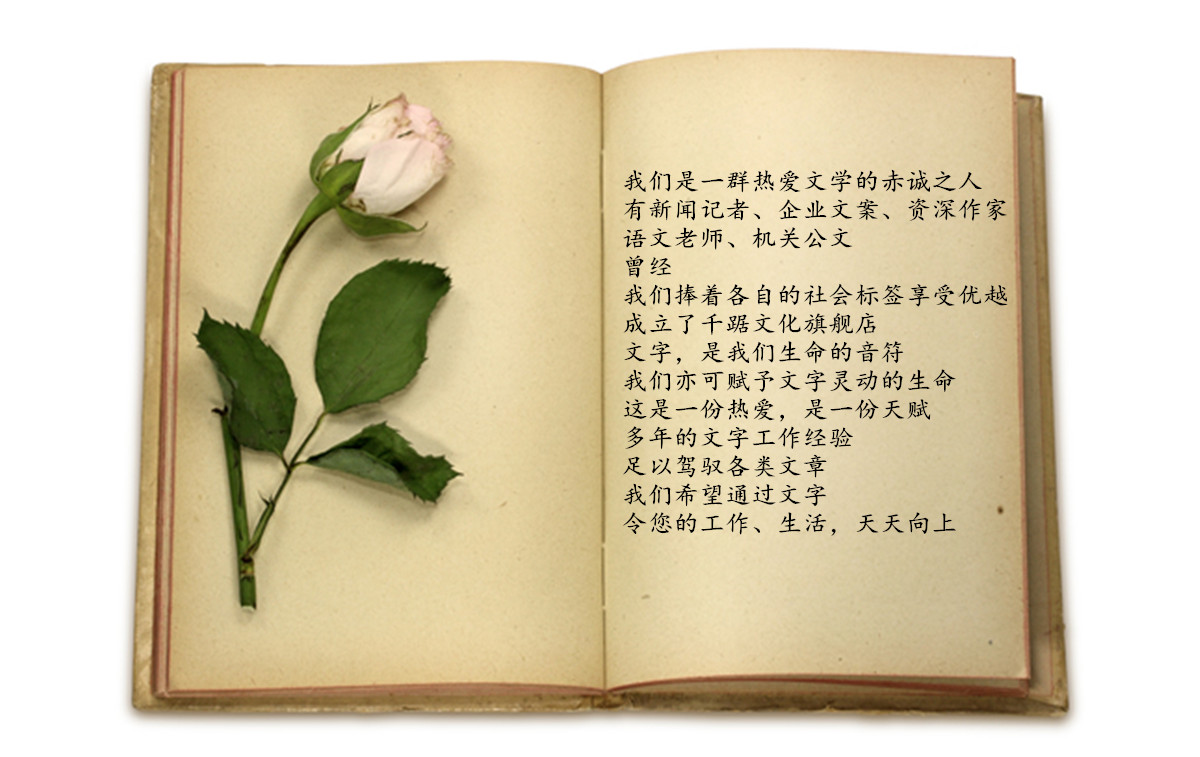 我们是一群热爱文学的赤诚之人
有新闻记者、企业文案、资深作家
语文老师、机关公文
曾经
我们捧着各自的社会标签享受优越
成立了千踞文化旗舰店
文字，是我们生命的音符
我们亦可赋予文字灵动的生命
这是一份热爱，是一份天赋
多年的文字工作经验
足以驾驭各类文章
我们希望通过文字
令您的工作、生活，天天向上